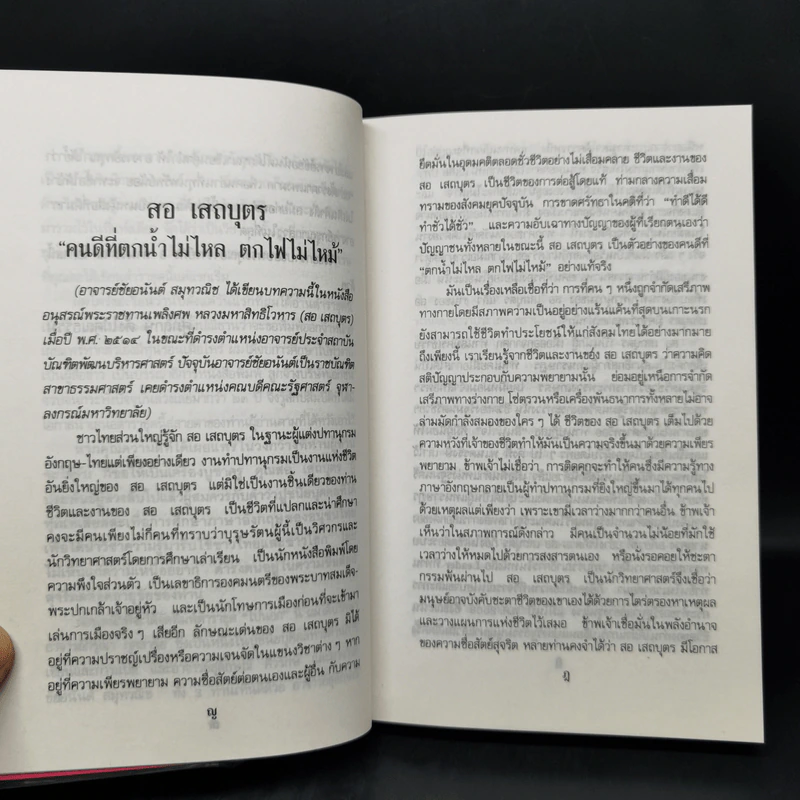 สอ เสถบุตร
“คนดีที่ตกน้ำไม่ไหล ตกไฟไม่ไหม้”
(อาจารย์ชัยอนันต์ สมุทวณิช ได้เขียนบทความนี้ในหนังสือ
อนุสรณ์พระราชทานเพลิงศพ หลวงมหาสิทธิโวหาร (สอ เสถบุตร)
เมื่อปี พ.ศ. ๒๕๑๔ ในขณะที่ดำรงตำแหน่งอาจารย์ประจำสถาบัน
บัณฑิตพัฒนบริหารศาสตร์ ปัจจุบันอาจารย์ชัยอนันต์เป็นราชบัณฑิต
สาขาธรรมศาสตร์ เคยดำรงตำแหน่งคณบดีคณะรัฐศาสตร์ จุฬา-
ลงกรณ์มหาวิทยาลัย)
ชาวไทยส่วนใหญ่รู้จัก สอ เสถบุตร ในฐานะผู้แต่งปทานุกรม
อังกฤษ-ไทยแต่เพียงอย่างเดียว งานทำปทานุกรมเป็นงานแห่งชีวิต
อันยิ่งใหญ่ของ สอ เสถบุตร แต่มิใช่เป็นงานชิ้นเดียวของท่าน
ชีวิตและงานของ สอ เสถบุตร เป็นชีวิตที่แปลกและน่าศึกษา
คงจะมีคนเพียงไม่กี่คนที่ทราบว่าบุรุษรัตนผู้นี้เป็นวิศวกรและ
นักวิทยาศาสตร์โดยการศึกษาเล่าเรียน เป็นนักหนังสือพิมพ์โดย
ความพึงใจส่วนตัว เป็นเลขาธิการองคมนตรีของพระบาทสมเด็จ-
พระปกเกล้าเจ้าอยู่หัว และเป็นนักโทษการเมืองก่อนที่จะเข้ามา
เล่นการเมืองจริง ๆ เสียอีก ลักษณะเด่นของ สอ เสถบุตร มิได้
อยู่ที่ความปราชญ์เปรื่องหรือความเจนจัดในแขนงวิชาต่าง ๆ หาก
อยู่ที่ความเพียรพยายาม ความซื่อสัตย์ต่อตนเองและผู้อื่น กับความ
ญ
ยึดมั่นในอุดมคติตลอดชั่วชีวิตอย่างไม่เสื่อมคลาย ชีวิตและงานของ
สอ เสถบุตร เป็นชีวิตของการต่อสู้โดยแท้ ท่ามกลางความเสื่อม
ทรามของสังคมยุคปัจจุบัน การขาดศรัทธาในคติที่ว่า “ทำดีได้ดี
ทำชั่วได้ชั่ว” และความอับเฉาทางปัญญาของผู้ที่เรียกตนเองว่า
ปัญญาชนทั้งหลายในขณะนี้ สอ เสถบุตร เป็นตัวอย่างของคนดีที่
“ตกน้ำไม่ไหล ตกไฟไม่ไหม้” อย่างแท้จริง
มันเป็นเรื่องเหลือเชื่อที่ว่า การที่คน ๆ หนึ่งถูกจำกัดเสรีภาพ
ทางกายโดยมีสภาพความเป็นอยู่อย่างแร้นแค้นที่สุดบนเกาะนรก
ยังสามารถใช้ชีวิตทำประโยชน์ให้แก่สังคมไทยได้อย่างมากมาย
ถึงเพียงนี้ เราเรียนรู้จากชีวิตและงานของ สอ เสถบุตร ว่าความคิด
สติปัญญาประกอบกับความพยายามนั้น ย่อมอยู่เหนือการจำกัด
เสรีภาพทางร่างกาย โซ่ตรวนหรือเครื่องพันธนาการทั้งหลายไม่อาจ
ล่ามมัดกำลังสมองของใคร ๆ ได้ ชีวิตของ สอ เสถบุตร เต็มไปด้วย
ความหวังที่เจ้าของชีวิตทำให้มันเป็นความจริงขึ้นมาด้วยความเพียร
พยายาม ข้าพเจ้าไม่เชื่อว่า การติดคุกจะทำให้คนซึ่งมีความรู้ทาง
ภาษาอังกฤษกลายเป็นผู้ทำปทานุกรมที่ยิ่งใหญ่ขึ้นมาได้ทุกคนไป
ด้วยเหตุผลแต่เพียงว่า เพราะเขามีเวลาว่างมากกว่าคนอื่น ข้าพเจ้า
เห็นว่าในสภาพการณ์ดังกล่าว มีคนเป็นจำนวนไม่น้อยที่มักใช้
เวลาว่างให้หมดไปด้วยการสงสารตนเอง หรือนั่งรอคอยให้ชะตา
กรรมพ้นผ่านไป สอ เสถบุตร เป็นนักวิทยาศาสตร์จึงเชื่อว่า
มนุษย์อาจบังคับชะตาชีวิตของเขาเองได้ด้วยการไตร่ตรองหาเหตุผล
และวางแผนการแห่งชีวิตไว้เสมอ ข้าพเจ้าเชื่อมั่นในพลังอำนาจ
ของความซื่อสัตย์สุจริต หลายท่านคงจำได้ว่า สอ เสถบุตร มีโอกาส
ฎ